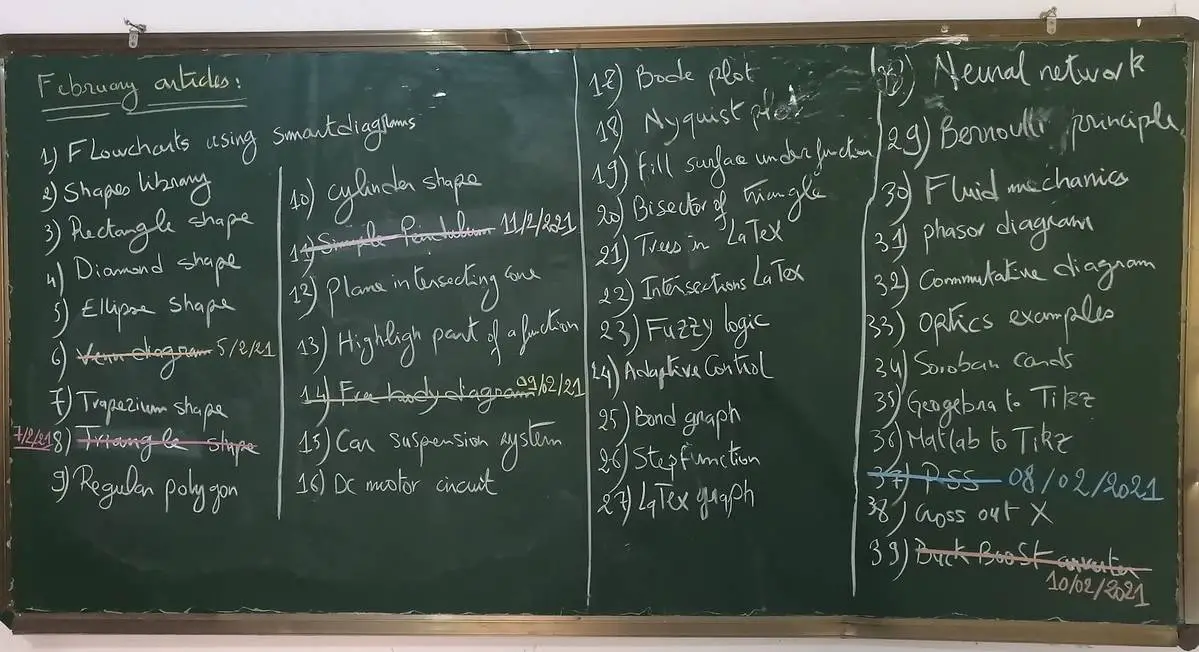 February articles:
1) Flowcharts using smartdiagrams
2) Shapes library
3) Rectangle shape
4) Diamond shape
5) Ellipse shape
6) Venn diagram 5/2/21
7) Trapezium shape
7/2/21 8) Triangle shape
9) Regular polygon
10) Cylinder shape
11) Simple Pendulum 11/2/2021
12) Plane intersecting cone
13) Highligh part of a function
14) Free body diagram 09/02/21
15) Car suspension system
16) DC motor circuit
17) Bode plot
18) Nyquist plot
19) Fill surface under function
20) Bisector of triangle
21) Trees in LaTex
22) Intersections LaTex
23) Fuzzy logic
24) Adaptive Control
25) Bond graph
26) Step function
27) LaTex graph
28) Neural network
29) Bernoulli principle
30) Fluid mechanics
31) phasor diagram
32) Commutative diagram
33) Optics examples
34) Soroban cards
35) Geogebra to Tikz
36) Matlab to Tikz
37) PSS 08/02/2021
38) Cross out X
39) Buck Boost converter
10/02/2021